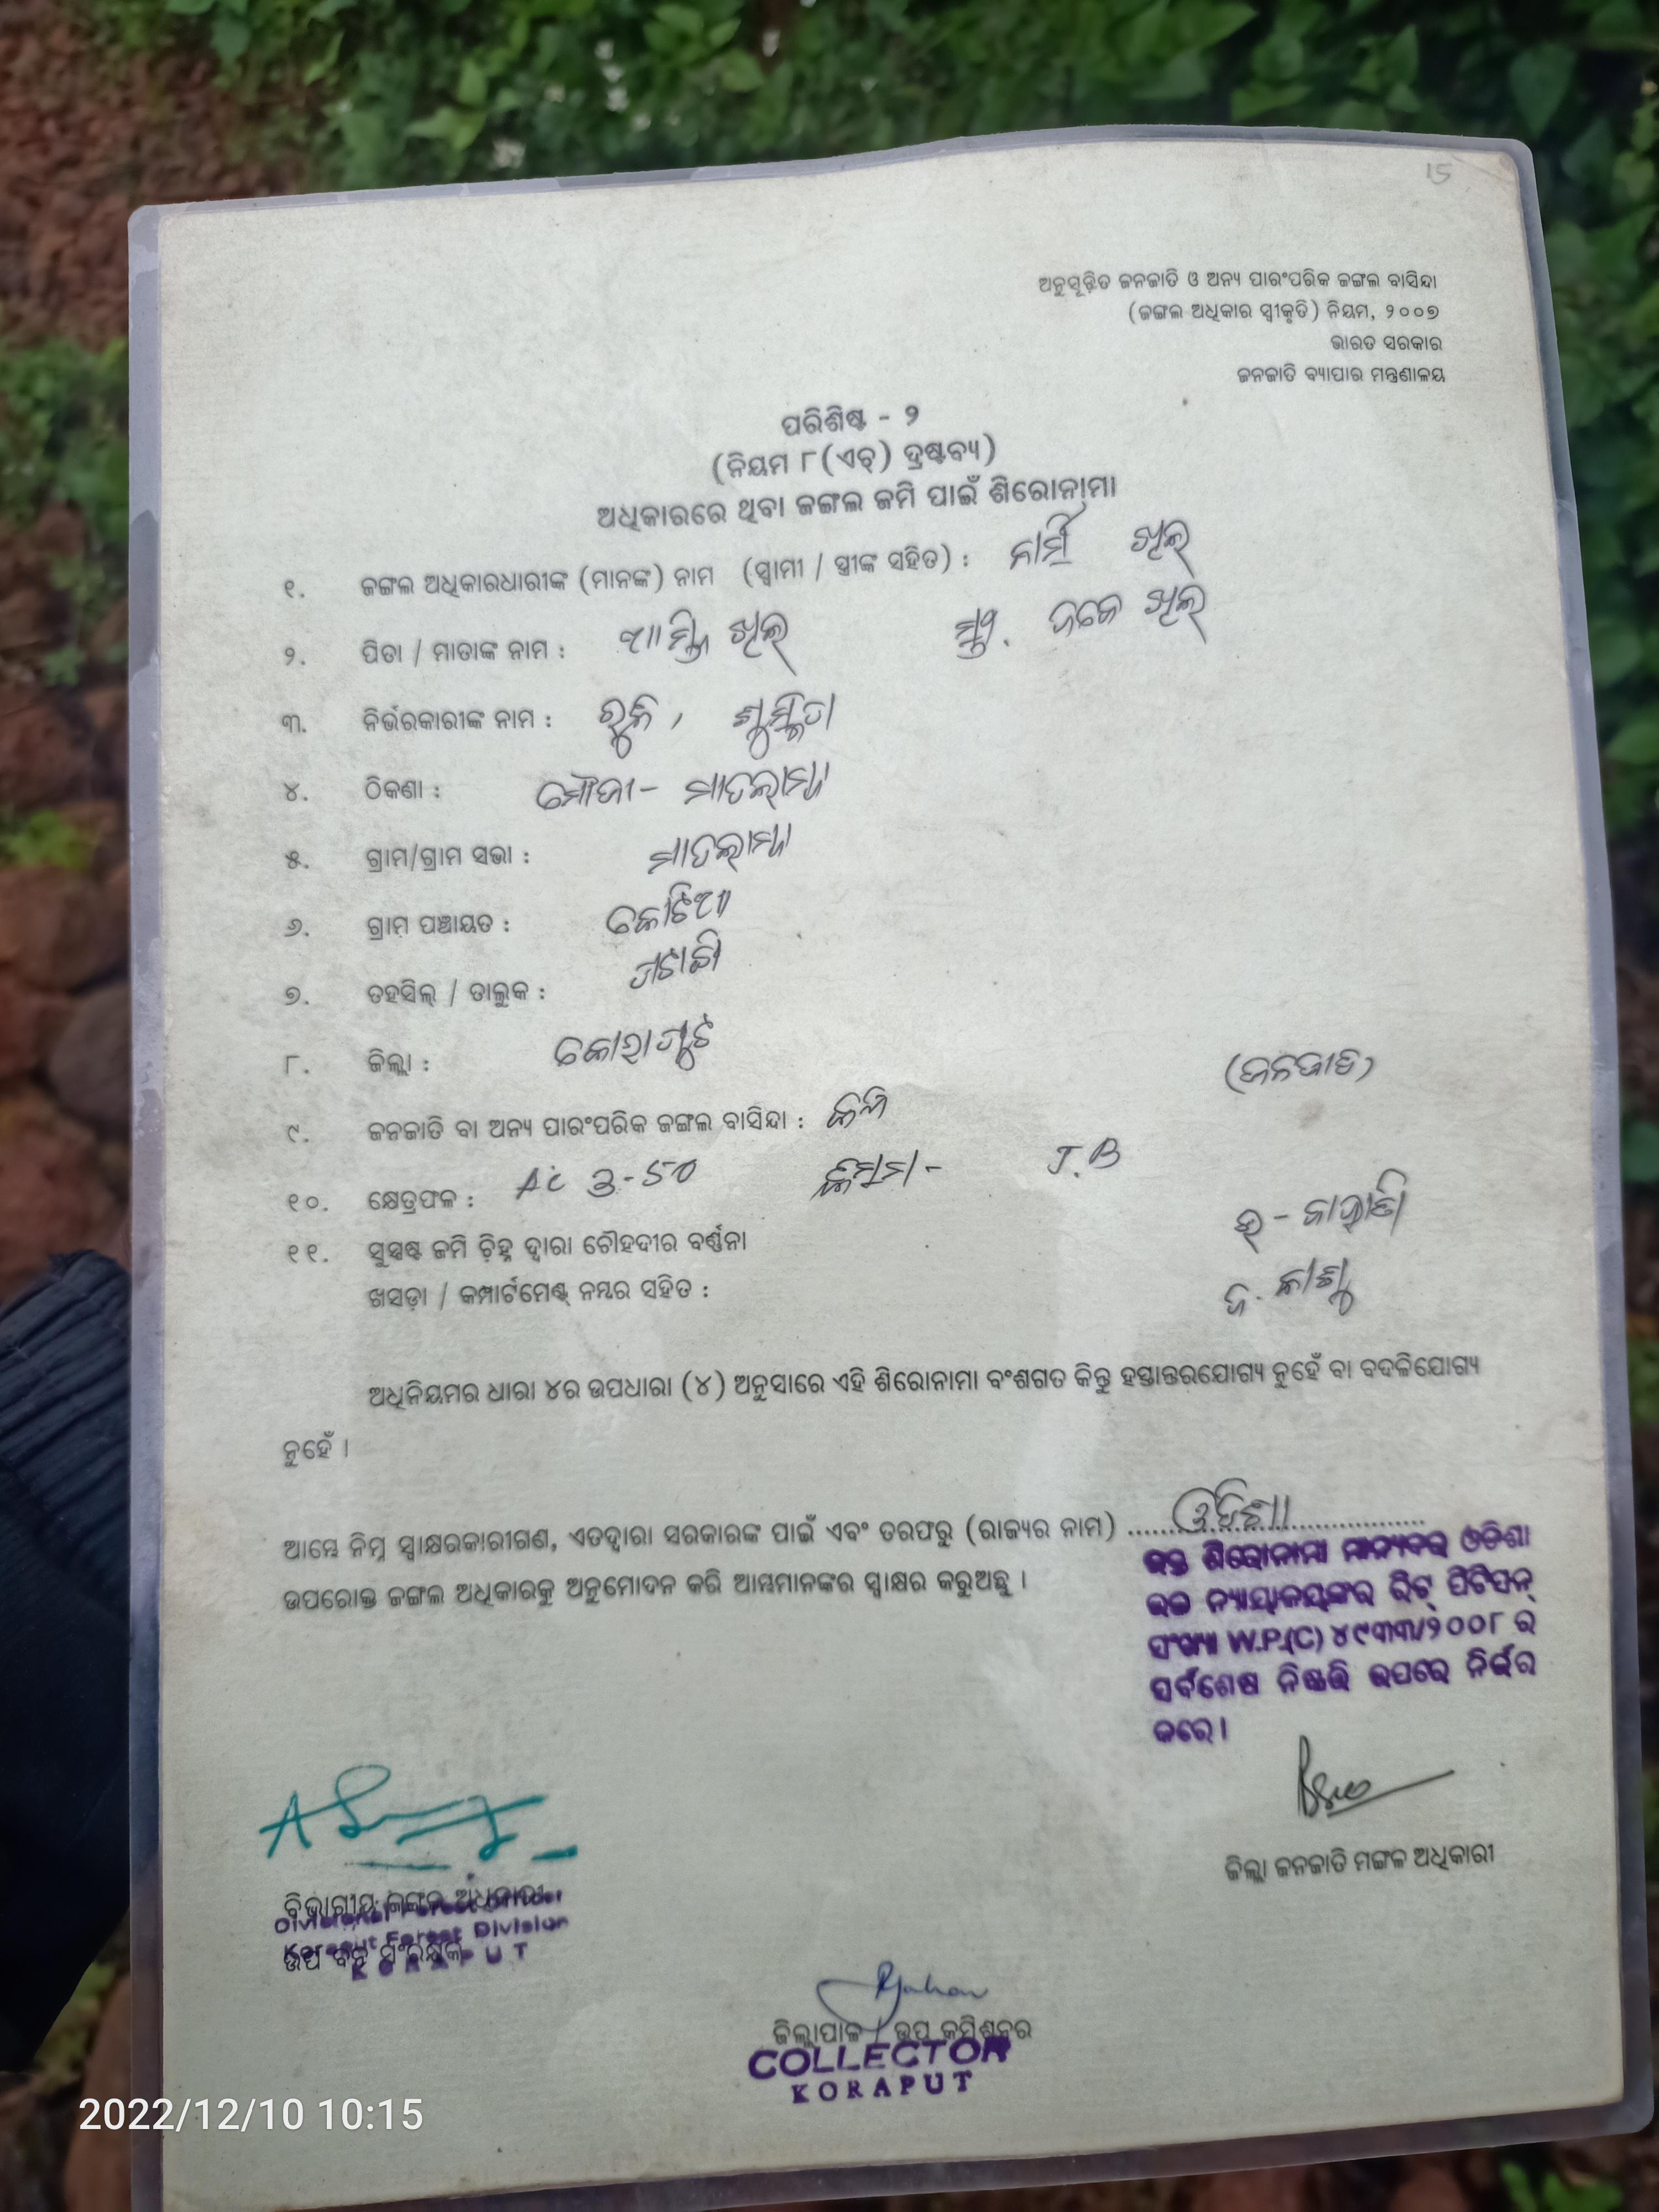 15
ଅନୁସୂଚିତ ଜନଜାତି ଓ ଅନ୍ୟ ପାରଂପରିକ ଜଙ୍ଗଲ ବାସିନ୍ଦା
(ଜଙ୍ଗଲ ଅଧିକାର ସ୍ୱୀକୃତି) ନିୟମ, ୨୦୦୭
ଭାରତ ସରକାର
ଜନଜାତି ବ୍ୟାପାର ମନ୍ତ୍ରଣାଳୟ
ପରିଶିଷ୍ଟ - ୨
(ନିୟମ ୮(ଏଚ୍) ଦ୍ରଷ୍ଟବ୍ୟ)
ଅଧିକାରରେ ଥିବା ଜଙ୍ଗଲ ଜମି ପାଇଁ ଶିରୋନାମା
୧. ଜଙ୍ଗଲ ଅଧିକାରଧାରୀଙ୍କ (ମାନଙ୍କ) ନାମ (ସ୍ୱାମୀ / ସ୍ତ୍ରୀଙ୍କ ସହିତ) :
୨. ପିତା / ମାତାଙ୍କ ନାମ :
୩. ନିର୍ଭରକାରୀଙ୍କ ନାମ :
୪. ଠିକଣା : ମୌଜା-
୫. ଗ୍ରାମ/ଗ୍ରାମ ସଭା :
୬. ଗ୍ରାମ ପଞ୍ଚାୟତ : କୋଟିଆ
୭. ତହସିଲ୍ / ତାଲୁକ : ପଟାଙ୍ଗି
୮. ଜିଲ୍ଲା : କୋରାପୁଟ
୯. ଜନଜାତି ବା ଅନ୍ୟ ପାରଂପରିକ ଜଙ୍ଗଲ ବାସିନ୍ଦା : (ଜନଜାତି)
୧୦. କ୍ଷେତ୍ରଫଳ : Ac 3-50 କିସମ- J.B
୧୧. ସୁସ୍ପଷ୍ଟ ଜମି ଚିହ୍ନ ଦ୍ୱାରା ଚୌହଦୀର ବର୍ଣ୍ଣନା
ଖସଡ଼ା / କମ୍ପାର୍ଟମେଣ୍ଟ୍ ନମ୍ବର ସହିତ :
ଅଧିନିୟମର ଧାରା ୪ର ଉପଧାରା (୪) ଅନୁସାରେ ଏହି ଶିରୋନାମା ବଂଶଗତ କିନ୍ତୁ ହସ୍ତାନ୍ତରଯୋଗ୍ୟ ନୁହେଁ ବା ବଦଳିଯୋଗ୍ୟ
ନୁହେଁ ।
ଆମ୍ଭେ ନିମ୍ନ ସ୍ୱାକ୍ଷରକାରୀଗଣ, ଏତଦ୍ୱାରା ସରକାରଙ୍କ ପାଇଁ ଏବଂ ତରଫରୁ (ରାଜ୍ୟର ନାମ) ଓଡିଶା
ଉପରୋକ୍ତ ଜଙ୍ଗଲ ଅଧିକାରକୁ ଅନୁମୋଦନ କରି ଆମ୍ଭମାନଙ୍କର ସ୍ୱାକ୍ଷର କରୁଅଛୁ ।
ଉକ୍ତ ଶିରୋନାମା ମାନ୍ୟବର ଓଡିଶା
ଉଚ୍ଚ ନ୍ୟାୟାଳୟଙ୍କର ରିଟ୍ ପିଟିସନ୍
ସଂଖ୍ୟା W.P.(C) ୪୯୩୩/୨୦୦୮ ର
ସର୍ବଶେଷ ନିଷ୍ପତ୍ତି ଉପରେ ନିର୍ଭର
କରେ ।
ଜିଲ୍ଲା ଜନଜାତି ମଙ୍ଗଳ ଅଧିକାରୀ
ବିଭାଗୀୟ ଜଙ୍ଗଲ ଅଧିକାରୀ
Divisional Forest Officer
Koraput Forest Division
ଉପ ବନ ସଂରକ୍ଷକ
KORAPUT
ଜିଲ୍ଲାପାଳ / ଉପ କମିଶନର
COLLECTOR
KORAPUT
2022/12/10 10:15